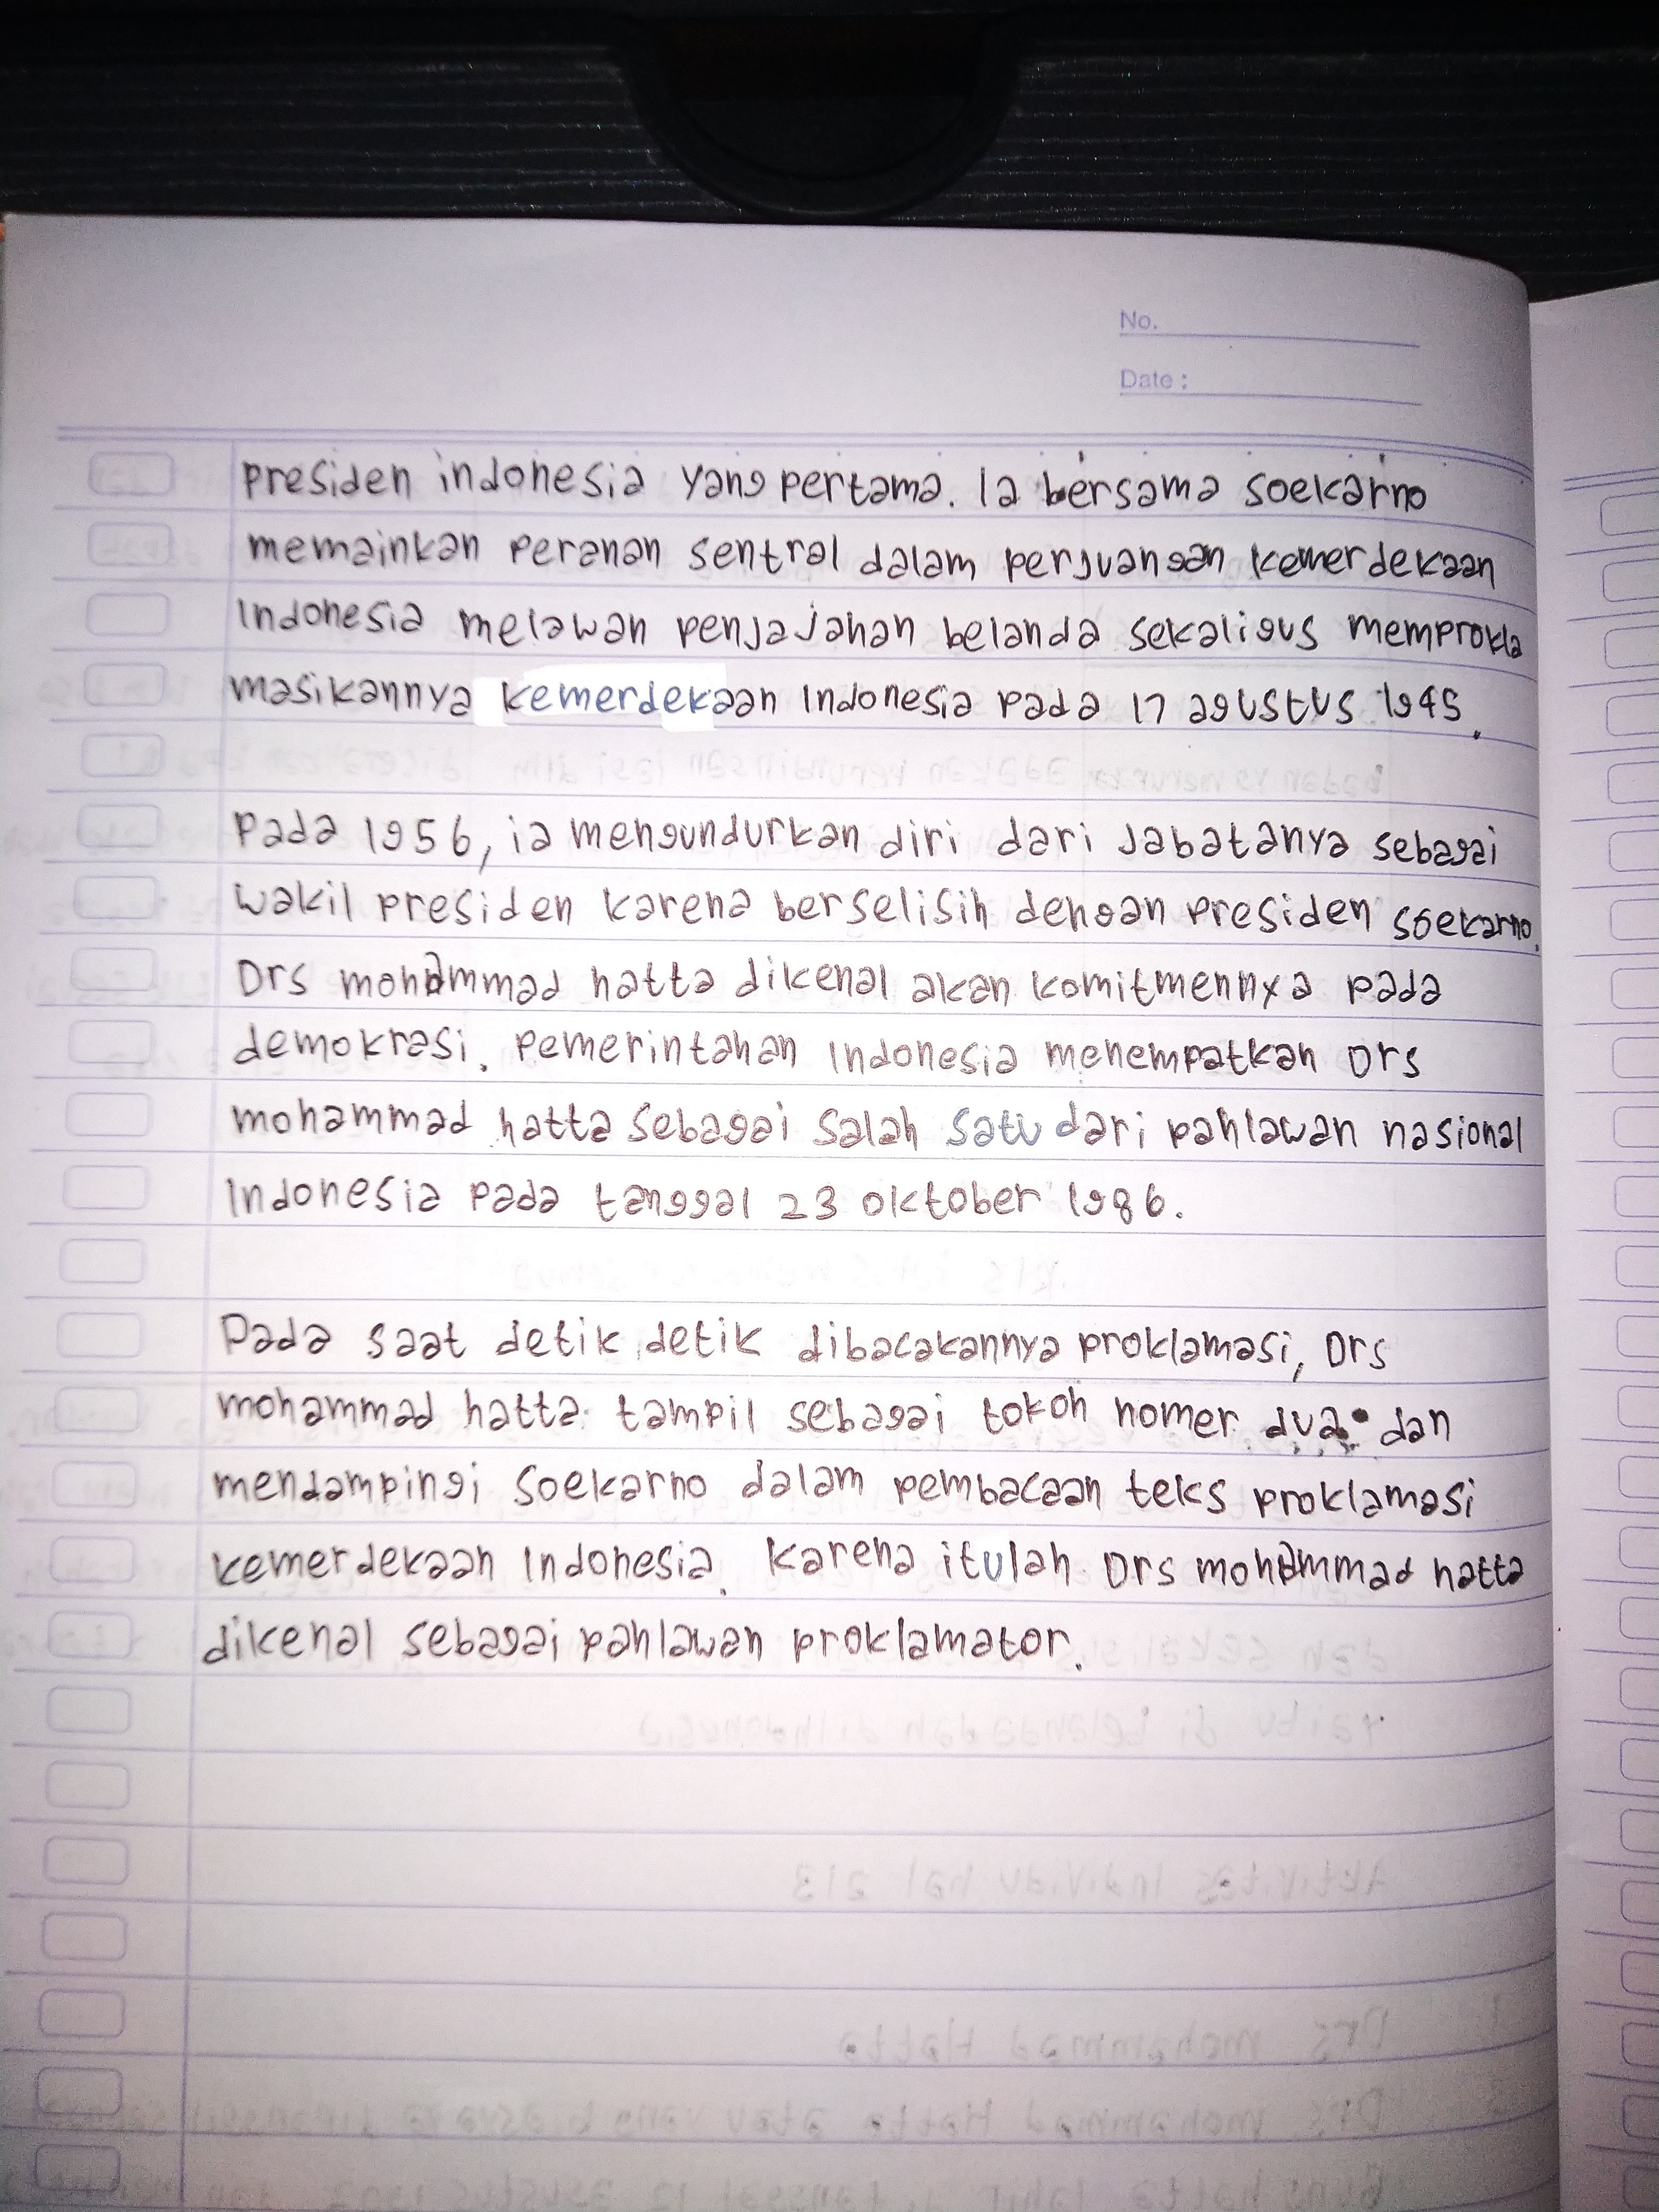 No.
Date :
presiden indonesia yang pertama. Ia bersama soekarno
memainkan peranan sentral dalam perjuangan kemerdekaan
Indonesia melawan penjajahan belanda sekaligus memprokla
masikannya kemerdekaan Indonesia pada 17 agustus 1945.
Pada 1956, ia mengundurkan diri dari Jabatanya sebagai
wakil presiden karena berselisih dengan presiden soekarno.
Drs mohammad hatta dikenal akan komitmennya pada
demokrasi. pemerintahan Indonesia menempatkan Drs
mohammad hatta sebagai salah satu dari pahlawan nasional
Indonesia pada tanggal 23 oktober 1986.
Pada saat detik detik dibacakannya proklamasi, Drs
mohammad hatta tampil sebagai tokoh nomer dua dan
mendampingi soekarno dalam pembacaan teks proklamasi
kemerdekaan Indonesia. Karena itulah Drs mohammad hatta
dikenal sebagai pahlawan proklamator.